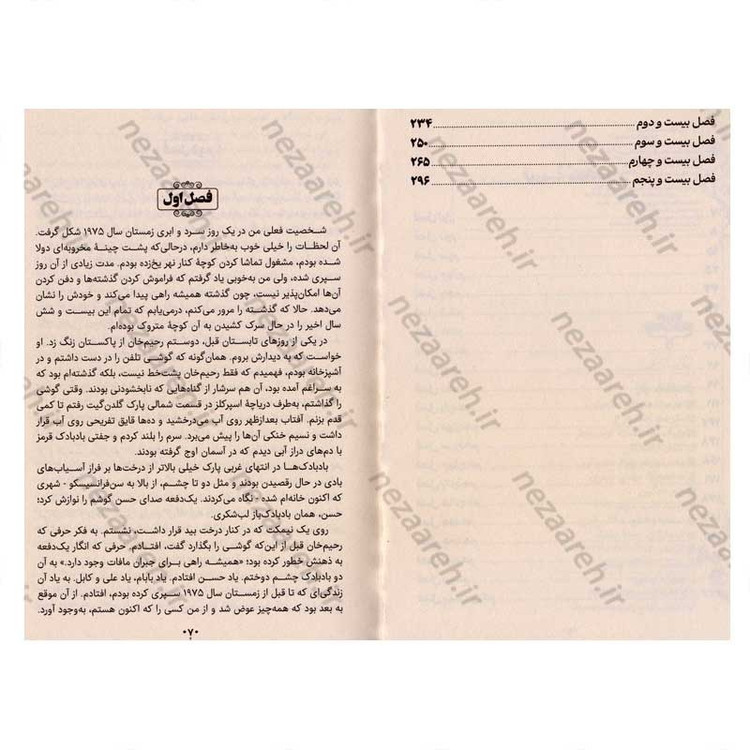 فصل بیست و دوم ........ ۲۳۴
فصل بیست و سوم ........ ۲۵۰
فصل بیست و چهارم ........ ۲۶۵
فصل بیست و پنجم ........ ۲۹۶
فصل اول
شخصیت فعلی من در یک روز سرد و ابری زمستان سال ۱۹۷۵ شکل گرفت.
آن لحظات را خیلی خوب به‌خاطر دارم، درحالی‌که پشت چینهٔ مخروبه‌ای دولا
شده بودم، مشغول تماشا کردن کوچهٔ کنار نهر یخ‌زده بودم. مدت زیادی از آن روز
سپری شده، ولی من به‌خوبی یاد گرفتم که فراموش کردن گذشته‌ها و دفن کردن
آن‌ها امکان‌پذیر نیست، چون گذشته همیشه راهی پیدا می‌کند و خودش را نشان
می‌دهد. حالا که گذشته را مرور می‌کنم، درمی‌یابم که تمام این بیست و شش
سال اخیر را در حال سرک کشیدن به آن کوچهٔ متروک بوده‌ام.
در یکی از روزهای تابستان قبل، دوستم رحیم‌خان از پاکستان زنگ زد. او
خواست که به دیدارش بروم. همان‌گونه که گوشی تلفن را در دست داشتم و در
آشپزخانه بودم، فهمیدم که فقط رحیم‌خان پشت‌خط نیست، بلکه گذشته‌ام بود که
به سراغم آمده بود، آن هم سرشار از گناه‌هایی که نابخشودنی بودند. وقتی گوشی
را گذاشتم، به‌طرف دریاچهٔ اسپرکلز در قسمت شمالی پارک گلدن‌گیت رفتم تا کمی
قدم بزنم. آفتاب بعدازظهر روی آب می‌درخشید و ده‌ها قایق تفریحی روی آب قرار
داشت و نسیم خنکی آن‌ها را پیش می‌برد. سرم را بلند کردم و جفتی بادبادک قرمز
با دم‌های دراز آبی دیدم که در آسمان اوج گرفته بودند.
بادبادک‌ها در انتهای غربی پارک خیلی بالاتر از درخت‌ها بر فراز آسیاب‌های
بادی در حال رقصیدن بودند و مثل دو تا چشم، از بالا به سن‌فرانسیسکو - شهری
که اکنون خانه‌ام شده - نگاه می‌کردند. یک‌دفعه صدای حسن گوشم را نوازش کرد؛
حسن، همان بادبادک‌باز لب‌شکری.
روی یک نیمکت که در کنار درخت بید قرار داشت، نشستم. به فکر حرفی که
رحیم‌خان قبل از این‌که گوشی را بگذارد گفت، افتادم. حرفی که انگار یک‌دفعه
به ذهنش خطور کرده بود؛ «همیشه راهی برای جبران مافات وجود دارد.» به آن
دو بادبادک چشم دوختم. یاد حسن افتادم. یاد بابام، یاد علی و کابل. به یاد آن
زندگی‌ای که تا قبل از زمستان سال ۱۹۷۵ سپری کرده بودم، افتادم. از آن موقع
به بعد بود که همه‌چیز عوض شد و از من کسی را که اکنون هستم، به‌وجود آورد.
۰۷۰
nezaareh.ir
nezaareh.ir
nezaareh.ir
nezaareh.ir
nezaareh.ir
nezaareh.ir
nezaareh.ir
nezaareh.ir
nezaareh.ir